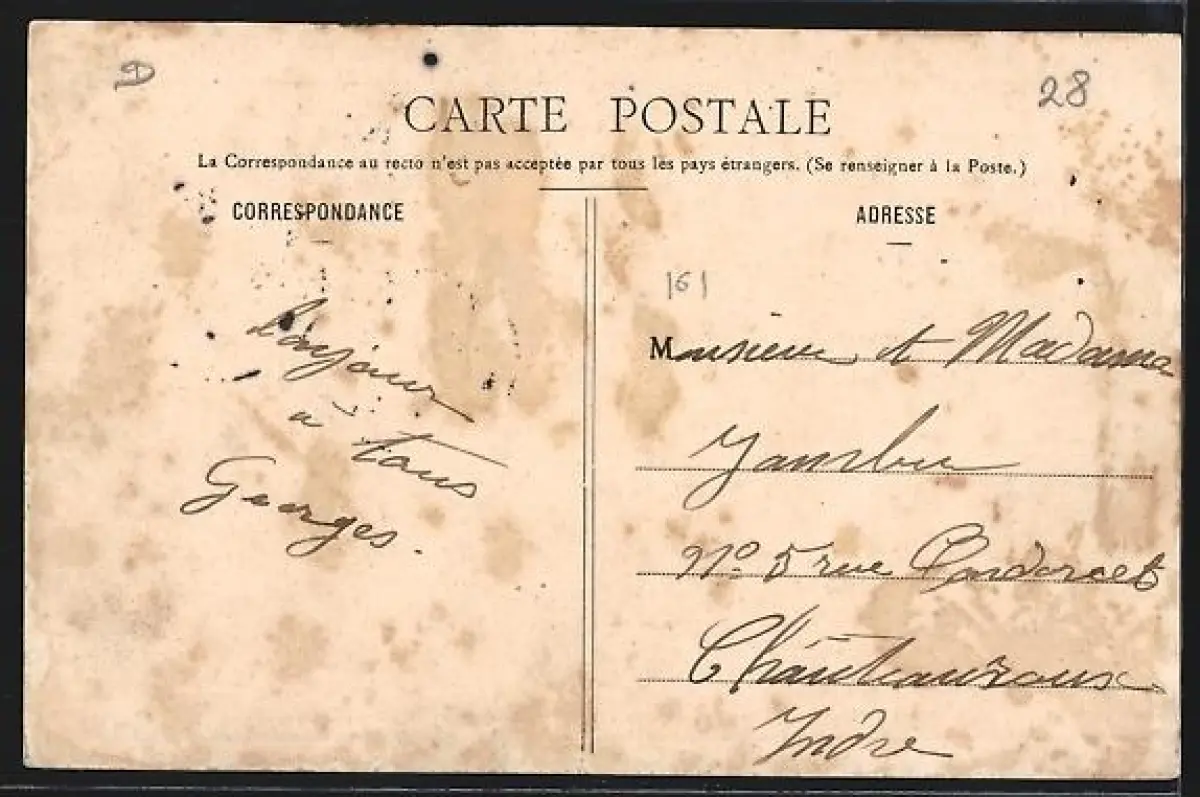 D
28
CARTE POSTALE
La Correspondance au recto n'est pas acceptée par tous les pays étrangers. (Se renseigner à la Poste.)
CORRESPONDANCE
Bonjour
à tous
Georges.
ADRESSE
161
Monsieur et Madame
N° 5 rue Condorcet
Châteauroux
Indre